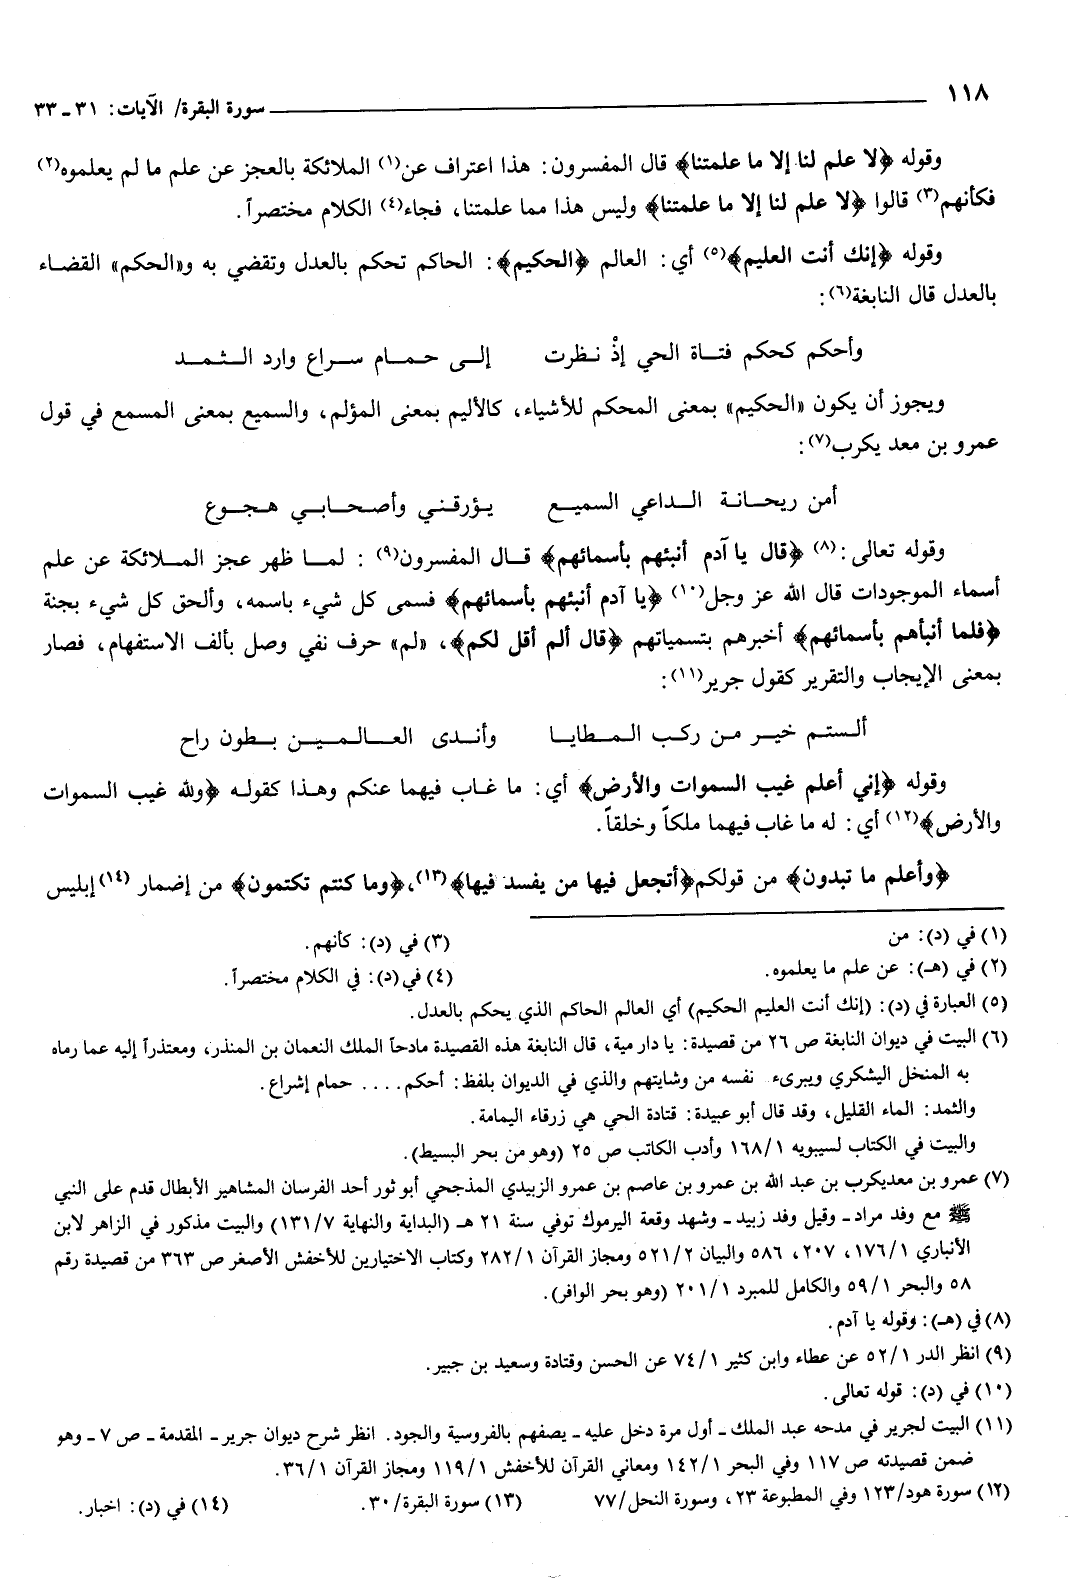 ١١٨
سورة البقرة/ الآيات: ٣١ ـ ٣٣
وقوله ﴿لا علم لنا إلا ما علمتنا﴾ قال المفسرون: هذا اعتراف عن(١) الملائكة بالعجز عن علم ما لم يعلموه(٢)
فكأنهم(٣) قالوا ﴿لا علم لنا إلا ما علمتنا﴾ وليس هذا مما علمتنا، فجاء(٤) الكلام مختصراً.
وقوله ﴿إنك أنت العليم﴾(٥) أي: العالم ﴿الحكيم﴾: الحاكم تحكم بالعدل وتقضي به و«الحكم» القضاء
بالعدل قال النابغة(٦):
وأحكم كحكم فتاة الحي إذْ نظرت إلى حمام سراع وارد الثمد
ويجوز أن يكون «الحكيم» بمعنى المحكم للأشياء، كالأليم بمعنى المؤلم، والسميع بمعنى المسمع في قول
عمرو بن معد يكرب(٧):
أمن ريحانة الداعي السميع يؤرقني وأصحابي هجوع
وقوله تعالى:(٨) ﴿قال يا آدم أنبئهم بأسمائهم﴾ قال المفسرون(٩) : لما ظهر عجز الملائكة عن علم
أسماء الموجودات قال الله عز وجل(١٠) ﴿يا آدم أنبئهم بأسمائهم﴾ فسمى كل شيء باسمه، وألحق كل شيء بجنة
﴿فلما أنبأهم بأسمائهم﴾ أخبرهم بتسمياتهم ﴿قال ألم أقل لكم﴾، «لم» حرف نفي وصل بألف الاستفهام، فصار
بمعنى الإيجاب والتقرير كقول جرير(١١):
ألستم خير من ركب المطايا وأندى العالمين بطون راح
وقوله ﴿إني أعلم غيب السموات والأرض﴾ أي: ما غاب فيهما عنكم وهذا كقوله ﴿ولله غيب السموات
والأرض﴾(١٢) أي: له ما غاب فيهما ملكاً وخلقاً.
﴿وأعلم ما تبدون﴾ من قولكم﴿أتجعل فيها من يفسد فيها﴾(١٣)،﴿وما كنتم تكتمون﴾ من إضمار (١٤) إبليس
(١) في (د): من
(٣) في (د): كأنهم.
(٢) في (هـ): عن علم ما يعلموه.
(٤) في (د): في الكلام مختصراً.
(٥) العبارة في (د): (إنك أنت العليم الحكيم) أي العالم الحاكم الذي يحكم بالعدل.
(٦) البيت في ديوان النابغة ص ٢٦ من قصيدة: يا دار مية، قال النابغة هذه القصيدة مادحاً الملك النعمان بن المنذر، ومعتذراً إليه عما رماه
به المنخل اليشكري ويبرىء نفسه من وشايتهم والذي في الديوان بلفظ: أحكم.... حمام إشراع.
والثمد: الماء القليل، وقد قال أبو عبيدة: قتادة الحي هي زرقاء اليمامة.
والبيت في الكتاب لسيبويه ١/١٦٨ وأدب الكاتب ص ٢٥ (وهو من بحر البسيط).
(٧) عمرو بن معديكرب بن عبد الله بن عمرو بن عاصم بن عمرو الزبيدي المذجحي أبو ثور أحد الفرسان المشاهير الأبطال قدم على النبي
ﷺ مع وفد مراد ـ وقيل وفد زبيد ـ وشهد وقعة اليرموك توفي سنة ٢١ هـ (البداية والنهاية ١٣١/٧) والبيت مذكور في الزاهر لابن
الأنباري ١٧٦/١، ٢٠٧، ٥٨٦ والبيان ٥٢١/٢ ومجاز القرآن ٢٨٢/١ وكتاب الاختيارين للأخفش الأصغر ص ٣٦٣ من قصيدة رقم
٥٨ والبحر ٥٩/١ والكامل للمبرد ٢٠١/١ (وهو بحر الوافر).
(٨) في (هـ): وقوله يا آدم.
(٩) انظر الدر ٥٢/١ عن عطاء وابن كثير ٧٤/١ عن الحسن وقتادة وسعيد بن جبير.
(١٠) في (د): قوله تعالى.
(١١) البيت لجرير في مدحه عبد الملك ـ أول مرة دخل عليه ـ يصفهم بالفروسية والجود. انظر شرح ديوان جرير ـ المقدمة ـ ص ٧ ـ وهو
ضمن قصيدته ص ١١٧ وفي البحر ١٤٢/١ ومعاني القرآن للأخفش ١١٩/١ ومجاز القرآن ٣٦/١.
(١٢) سورة هود/١٢٣ وفي المطبوعة ٢٣، وسورة النحل/٧٧
(١٣) سورة البقرة/٣٠.
(١٤) في (د): اخبار.